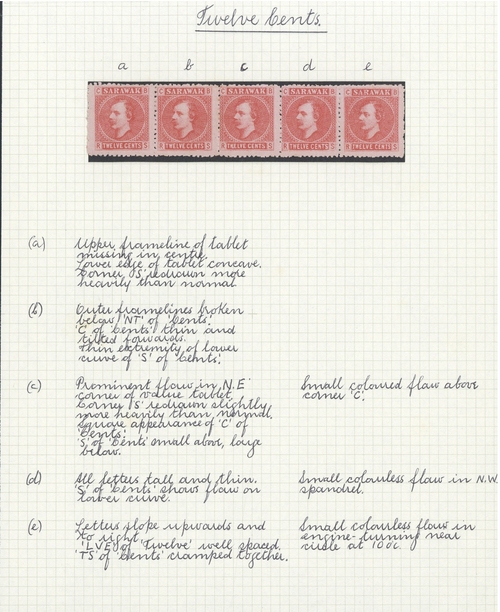 Twelve Cents.
a b c d e
SARAWAK SARAWAK SARAWAK SARAWAK SARAWAK
TWELVE CENTS TWELVE CENTS TWELVE CENTS TWELVE CENTS TWELVE CENTS
(a) Upper frameline of tablet
missing in centre.
Lower edge of tablet concave.
Corner 'S' redrawn more
heavily than normal.
(b) Outer framelines broken
below 'NT' of 'Cents'.
'C' of 'Cents' thin and
tilted forwards.
Thin extremity of lower
curve of 'S' of 'Cents'.
(c) Prominent flaw in N.E. Small coloured flaw above
corner of value tablet. corner 'C'.
Corner 'S' redrawn slightly
more heavily than normal.
Square appearance of 'C' of
'Cents'.
'S' of 'Cents' small above, large
below.
(d) All letters tall and thin. Small colourless flaw in N.W.
'S' of 'Cents' shows flaw on spandrel.
lower curve.
(e) Letters slope upwards and Small colourless flaw in
to right. engine-turning near
'LVE' of 'Twelve' well spaced. circle at 10 o'c.
'TS' of 'Cents' cramped together.